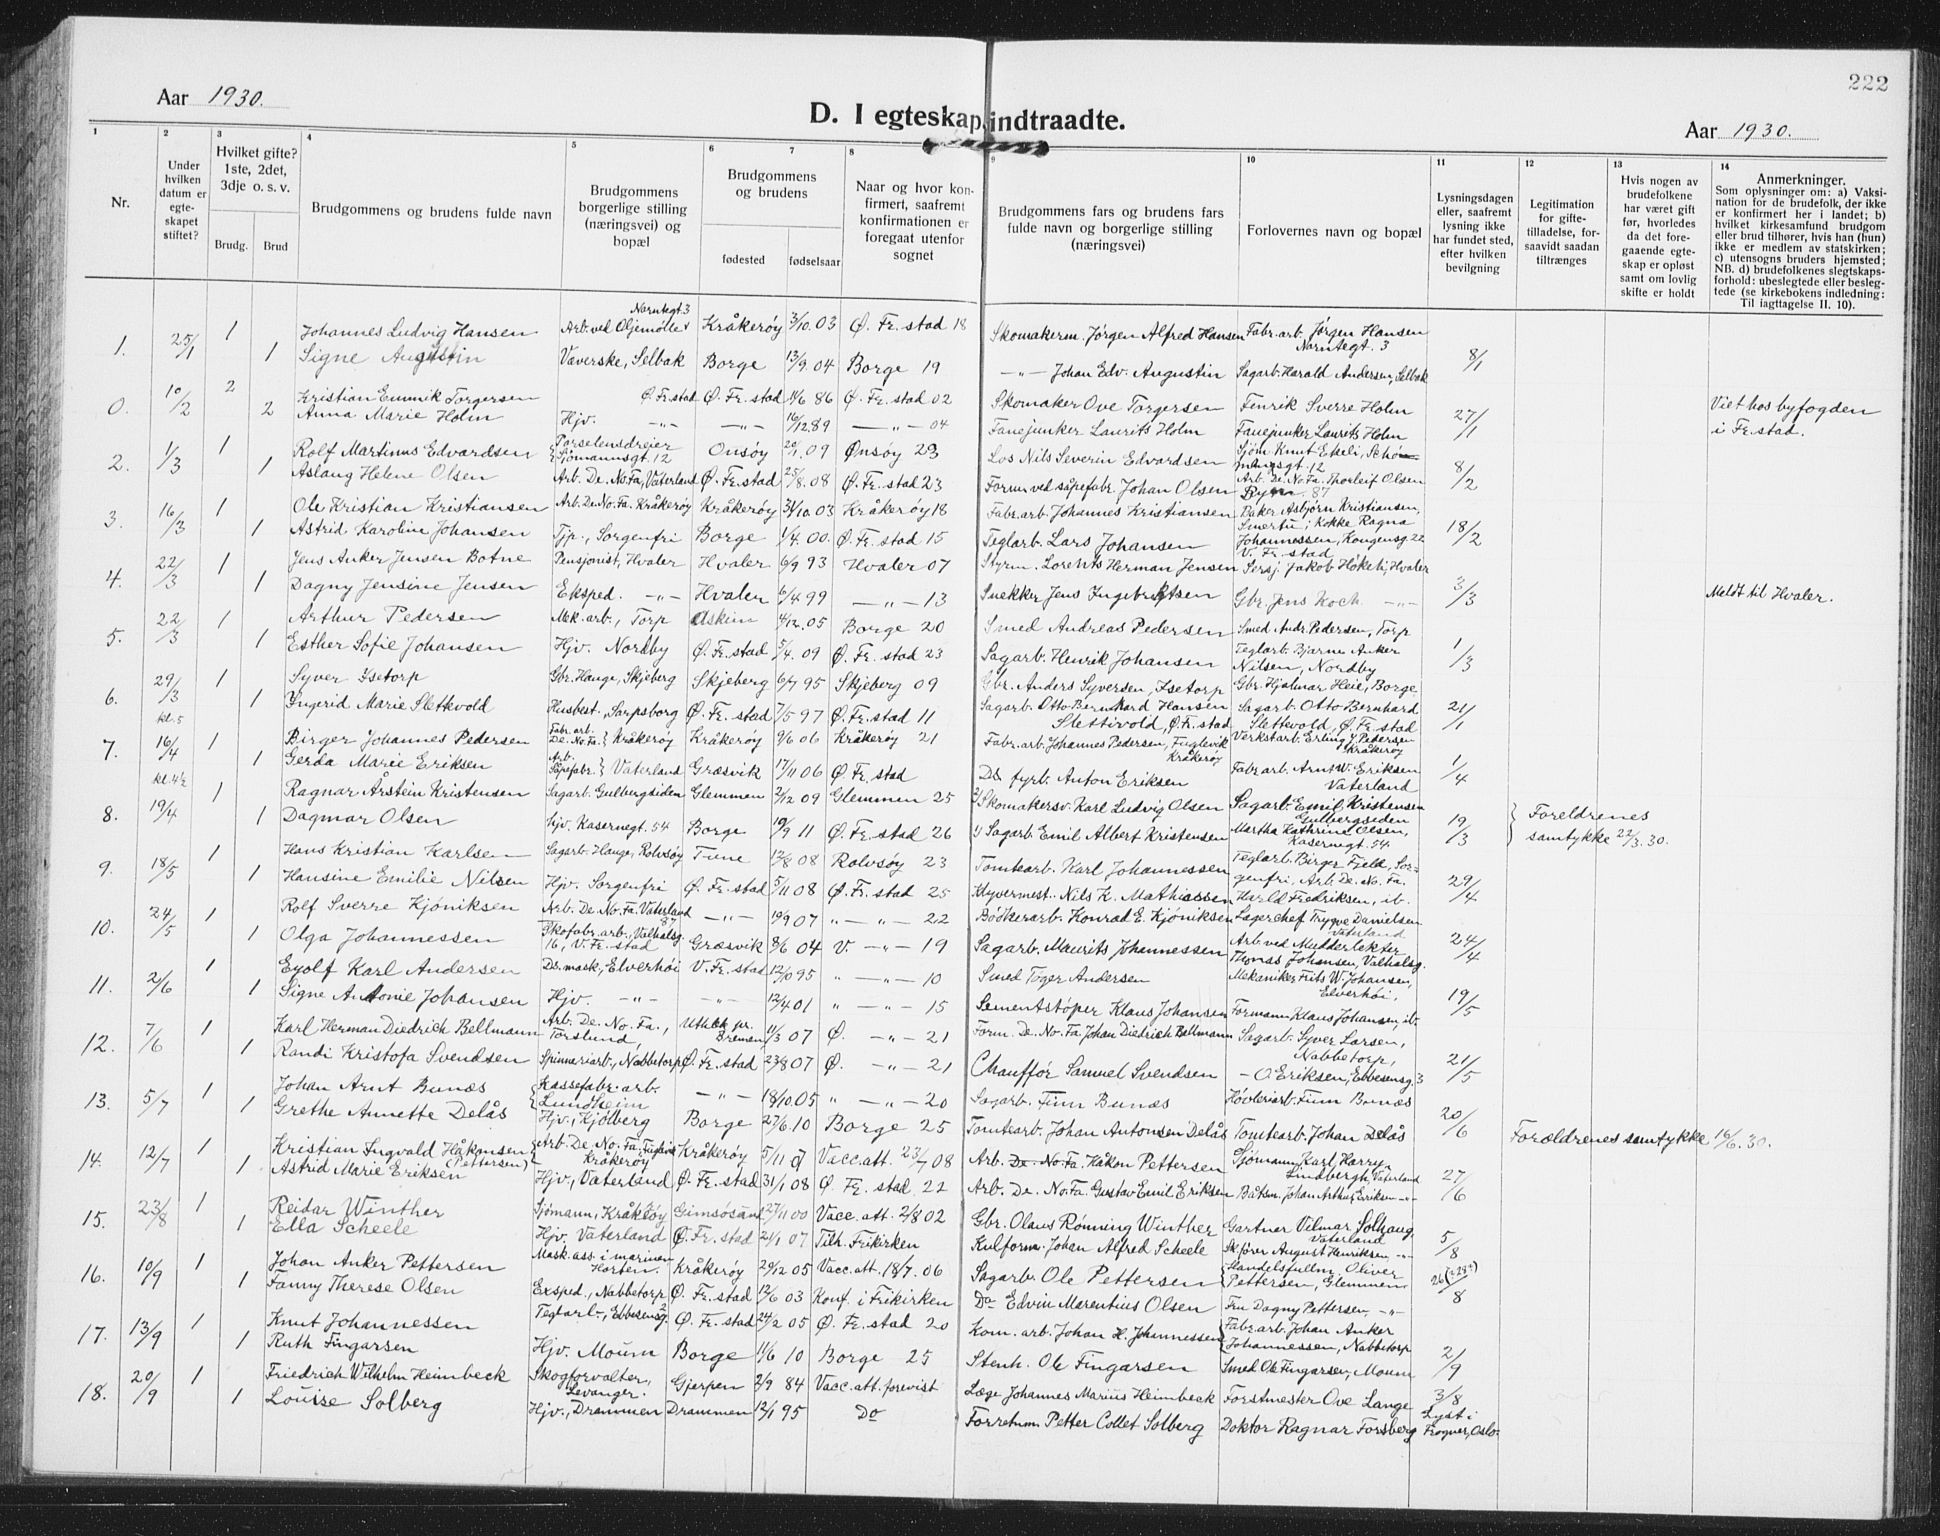 222
Aar 1930.
D. I egteskap indtraadte.
Aar 1930.
1 2 3 4 5 6 7 8 9 10 11 12 13 14
Nr.
Under hvilken datum er egte-skapet stiftet?
Hvilket gifte? 1ste, 2det, 3dje o. s. v.
Brudg. Brud
Brudgommens og brudens fulde navn
Brudgommens borgerlige stilling (næringsvei) og bopæl
Brudgommens og brudens
fødested fødselsaar
Naar og hvor kon-firmert, saafremt konfirmationen er foregaat utenfor sognet
Brudgommens fars og brudens fars fulde navn og borgerlige stilling (næringsvei)
Forlovernes navn og bopæl
Lysningsdagen eller, saafremt lysning ikke har fundet sted, efter hvilken bevilgning
Legitimation for gifte-tilladelse, for-saavidt saadan tiltrænges
Hvis nogen av brudefolkene har været gift før, hvorledes da det fore-gaaende egte-skap er opløst samt om lovlig skifte er holdt
Anmerkninger.
Som oplysninger om: a) Vaksi-nation for de brudefolk, der ikke er konfirmert her i landet; b) hvilket kirkesamfund brudgom eller brud tilhører, hvis han (hun) ikke er medlem av statskirken; c) utensogns bruders hjemsted; NB. d) brudefolkenes slegtskaps-forhold: ubeslegtede eller besleg-tede (se kirkebokens indledning: Til iagttagelse II. 10).
1. 25/1 1 Johannes Ludvig Hansen Arb. ved Oljemølle Norntegt. 3 Kråkerøy 3/10.03 Ø. Fr. stad 18 Skomakerm. Jörgen Alfred Hansen Fabr. arb. Jörgen Hansen Norntegt. 3 8/1
1 Signe Augustin Væverske, Selbak Borge 13/9.04 Borge 19 -"- Johan Edv. Augustin Sagarb. Harald Andersen, Selbak
0. 10/2 2 Kristian Emmik Torgersen Ø. Fr. stad Ø. Fr. stad 11/6 86 Ø. Fr. stad 02 Skomaker Ove Torgersen Fenrik Sverre Holm 27/1 Viet hos byfogden i Fr. stad.
2 Anna Marie Holm Hjv. -"- -"- 16/12.89 -"- 04 Fanejunker Laurits Holm Fanejunker Laurits Holm
2. 1/3 1 Rolf Martinus Edvardsen Porselensdreier Sjömannsgt. 12 Onsöy 20/1.09 Onsöy 23 Los Nils Severin Edvardsen Sjöm. Knut Ekeli, 8/2
1 Aslaug Helene Olsen Arb. De. No. Fa, Vaterland Ø. Fr. stad 25/8.08 Ø. Fr. stad 23 Form. ved såpefabr. Johan Olsen Arb. De. No. Fa. Thorleif Olsen
3. 16/3 1 Ole Kristian Kristiansen Arb. De No. Fa. Kråkerøy Kråkerøy 31/10.03 Kråkerøy 18 Fabr. arb. Johannes Kristiansen Baker Asbjörn Kristiansen, 18/2
1 Astrid Karoline Johansen Tjp., Sorgenfri Borge 1/4.00. Ø. Fr. stad 15 Teglarb. Lars Johansen Kokke Ragna Johannessen, Kongensg. 22 V. Fr. stad
4. 22/3 1 Jens Anker Jensen Botne Pensjonist, Hvaler Hvaler 6/9 93 Hvaler 07 Styrm. Lorents Herman Jensen Sersj. Jakob Hökeli, Hvaler 3/3 Meldt til Hvaler.
1 Dagny Jensine Jensen Eksped. -"- Hvaler 6/4 99 -"- 13 Snekker Jens Ingebretsen Gbr. Jens Koch -"-
5. 22/3 1 Arthur Pedersen Mek. arb., Torp Askim 4/12.05 Borge 20 Smed Andreas Pedersen Smed Andr. Pedersen, Torp 1/3
1 Esther Sofie Johansen Hjv. Nordby Ø. Fr. stad 5/4.09 Ø. Fr. stad 23 Sagarb. Henrik Johansen Teglarb. Bjarne Anker Nilsen, Nordby
6. 29/3 kl. 5 1 Syver Isetorp Gbr. Hauge, Skjeberg Skjeberg 6/7 95 Skjeberg 09 Gbr. Anders Syversen, Isetorp Gbr. Hjalmar Heie, Borge 21/1
1 Ingrid Marie Slettvold Husbest. Sarpsborg Ø. Fr. stad 7/5 97 Ø. Fr. stad 11 Sagarb. Otto Bernhard Hansen Slettivold, Ø. Fr. stad Sagarb. Otto Bernhard Slettvold, Ø. Fr. stad
7. 16/4 kl. 4½ 1 Birger Johannes Pedersen Fabr. arb. De. No. Fa. } Kråkerøy Kråkerøy 9/6 06 Kråkerøy 21 Fabr. arb. Johannes Pedersen, Fuglevik Kråkerøy Verkstarb. Erling J. Pedersen Kråkerøy 1/4
1 Gerda Marie Eriksen Arb. Såpefabr. } Vaterland Græsvik 17/11 06 Ø. Fr. stad Do fyrb. Anton Eriksen Fabr. arb. Arnt W. Eriksen Vaterland
8. 19/4 Ragnar Årstein Kristensen Sagarb. Gulbergsiden Glemmen 2/12 09 Glemmen 25 2/ Skomakersv. Karl Ludvig Olsen Sagarb. Emil Kristensen Gulbergsiden 19/3 } Foreldrenes samtykke 22/3.30.
1 Dagmar Olsen Hjv. Kasernegt. 54 Borge 19/9 11 Ø. Fr. stad 26 1/ Sagarb. Emil Albert Kristensen Martha Kathrine Olsen, Kasernegt. 54
9. 18/5 1 Hans Kristian Karlsen Sagarb. Hauge, Rolvsøy Tune 12/8 08 Rolvsøy 23 Tomtearb. Karl Johannessen Teglarb. Birger Fjeld, Sor-genfri, Arb. De. No. Fa. 29/4
1 Hansine Emilie Nilsen Hjv. Sorgenfri Ø. Fr. stad 5/11 08 Ø. Fr. stad 25 Klyvermest. Nils K. Mathiassen Harald Fredriksen, ib.
10. 24/5 1 Rolf Sverre Kjöniksen Arb. De. No. Fa. Vaterland 87 -"- 19/9 07 " -"- 22 Bödkerarb. Konrad E. Kjöniksen Lagerchef Trygve Danielsen Vaterland 24/4
1 Olga Johannessen Skofabr. arb., Valhalsg. 16, V. Fr. stad Græsvik 8/6 04 V. -"- 19 Sagarb. Maurits Johannessen Arb. ved Mudderlekter Thomas Johansen, Valhalsg.
11. 2/6 1 Eyolf Karl Andersen Ds. mask, Elverhöi V. Fr. stad 12/10 95 " -"- 10 Smed Toger Andersen Mekaniker Frits W. Johansen, Elverhöi, 19/5
1 Signe Antonie Johansen Hjv. -"- -"- 12/4 01 " -"- 15 Sementstöper Klaus Johansen Formann Klaus Johansen, ib.
12. 7/6 1 Karl Herman Diedrich Bellmann Arb. De. No. Fa., Torslund, Uthlek pr. Bremen 11/3 07 Ø. -"- 21 Form. De. No. Fa. Johan Diedrich Bellmann Sagarb. Syver Larsen, Nabbetorp, 21/5
1 Randi Kristofa Svendsen Spinneriarb., Nabbetorp Ø. Fr. stad 23/8 07 Ø. -"- 21 Chauffør Samuel Svendsen - O. Eriksen, Ebbesensg. 3
13. 5/7 1 Johan Arnt Bunæs Kassefabr. arb. Lundheim -"- 18/10.05 " -"- 20 Sagarb. Finn Bunæs Høvleriarb. Finn Bunæs 20/6
1 Grethe Annette Delås Hjv., Kjölberg Borge 27/6.10 Borge 25 Tomtearb. Johan Antonsen Delås Tomtearb. Johan Delås Forældrenes samtykke 16/6.30.
14. 12/7 1 Kristian Ingvald Håkonsen (Pettersen) Arb. De No. Fa. Fuglevik Kråkerøy Kråkerøy 5/11 07 Vacc. att. 23/7 08 Arb. De. No. Fa. Håkon Pettersen Sjömann Karl Harry Lindbergh, Vaterland 27/6
1 Astrid Marie Eriksen Hjv., Vaterland Ø. Fr. stad 31/1 08 Ø. Fr. stad 22 Arb. De. No. Fa. Gustav Emil Eriksen Båtsm. Johan Arthur Eriksen -"-
15. 23/8 1 Reidar Winther Sjömann, Kråkerøy Gimsösand 27/11 00 Vacc. att. 2/8 02 Gbr. Olaus Rønning Winther Gartner Vilmar Solhaug, Vaterland 5/8
1 Ella Scheele Hjv. Vaterland Ø. Fr. stad 21/1 07 Tilh. Frikirken Kulform. Johan Alfred Scheele Skfører August Henriksen, -"-
16. 10/9 1 Johan Anker Pettersen Mask. ass. i marinen Horten. Kråkerøy 29/12 05 Vacc. att. 18/7. 06 Sagarb. Ole Pettersen Handelsfullm. Oliver Pettersen, Glemmen 26/8
1 Fanny Therese Olsen Exsped., Nabbetorp Ø. Fr. stad 12/6 03 Konf. i Frikirken Do Edvin Marentius Olsen Fru Dagny Pettersen, -"-
17. 13/9 1 Knut Johannessen Teglarb., Ebbesensg. 2 Ø. Fr. stad 24/2 05 Ø. Fr. stad 20 Kom. arb. Johan H. Johannessen Fabr. arb. Johan Anker Johannessen, Nabbetorp 2/9
1 Ruth Fingarsen Hjv. Moum Borge 11/6 10 Borge 25 Stenh. Ole Fingarsen Smed Ole Fingarsen, Moum
18. 20/9 1 Friedrich Wilhelm Heimbeck Skogforvalter, Levanger. Gjerpen 2/9 84 Vacc. att. forevist Læge Johannes Marius Heimbeck Forstmester Ove Lange 3/8
1 Louise Solberg Hjv., Drammen Drammen 12/1 95 Do Forretnm. Petter Collet Solberg Doktor Ragnar Forsberg Lyst i Frogner, Oslo.